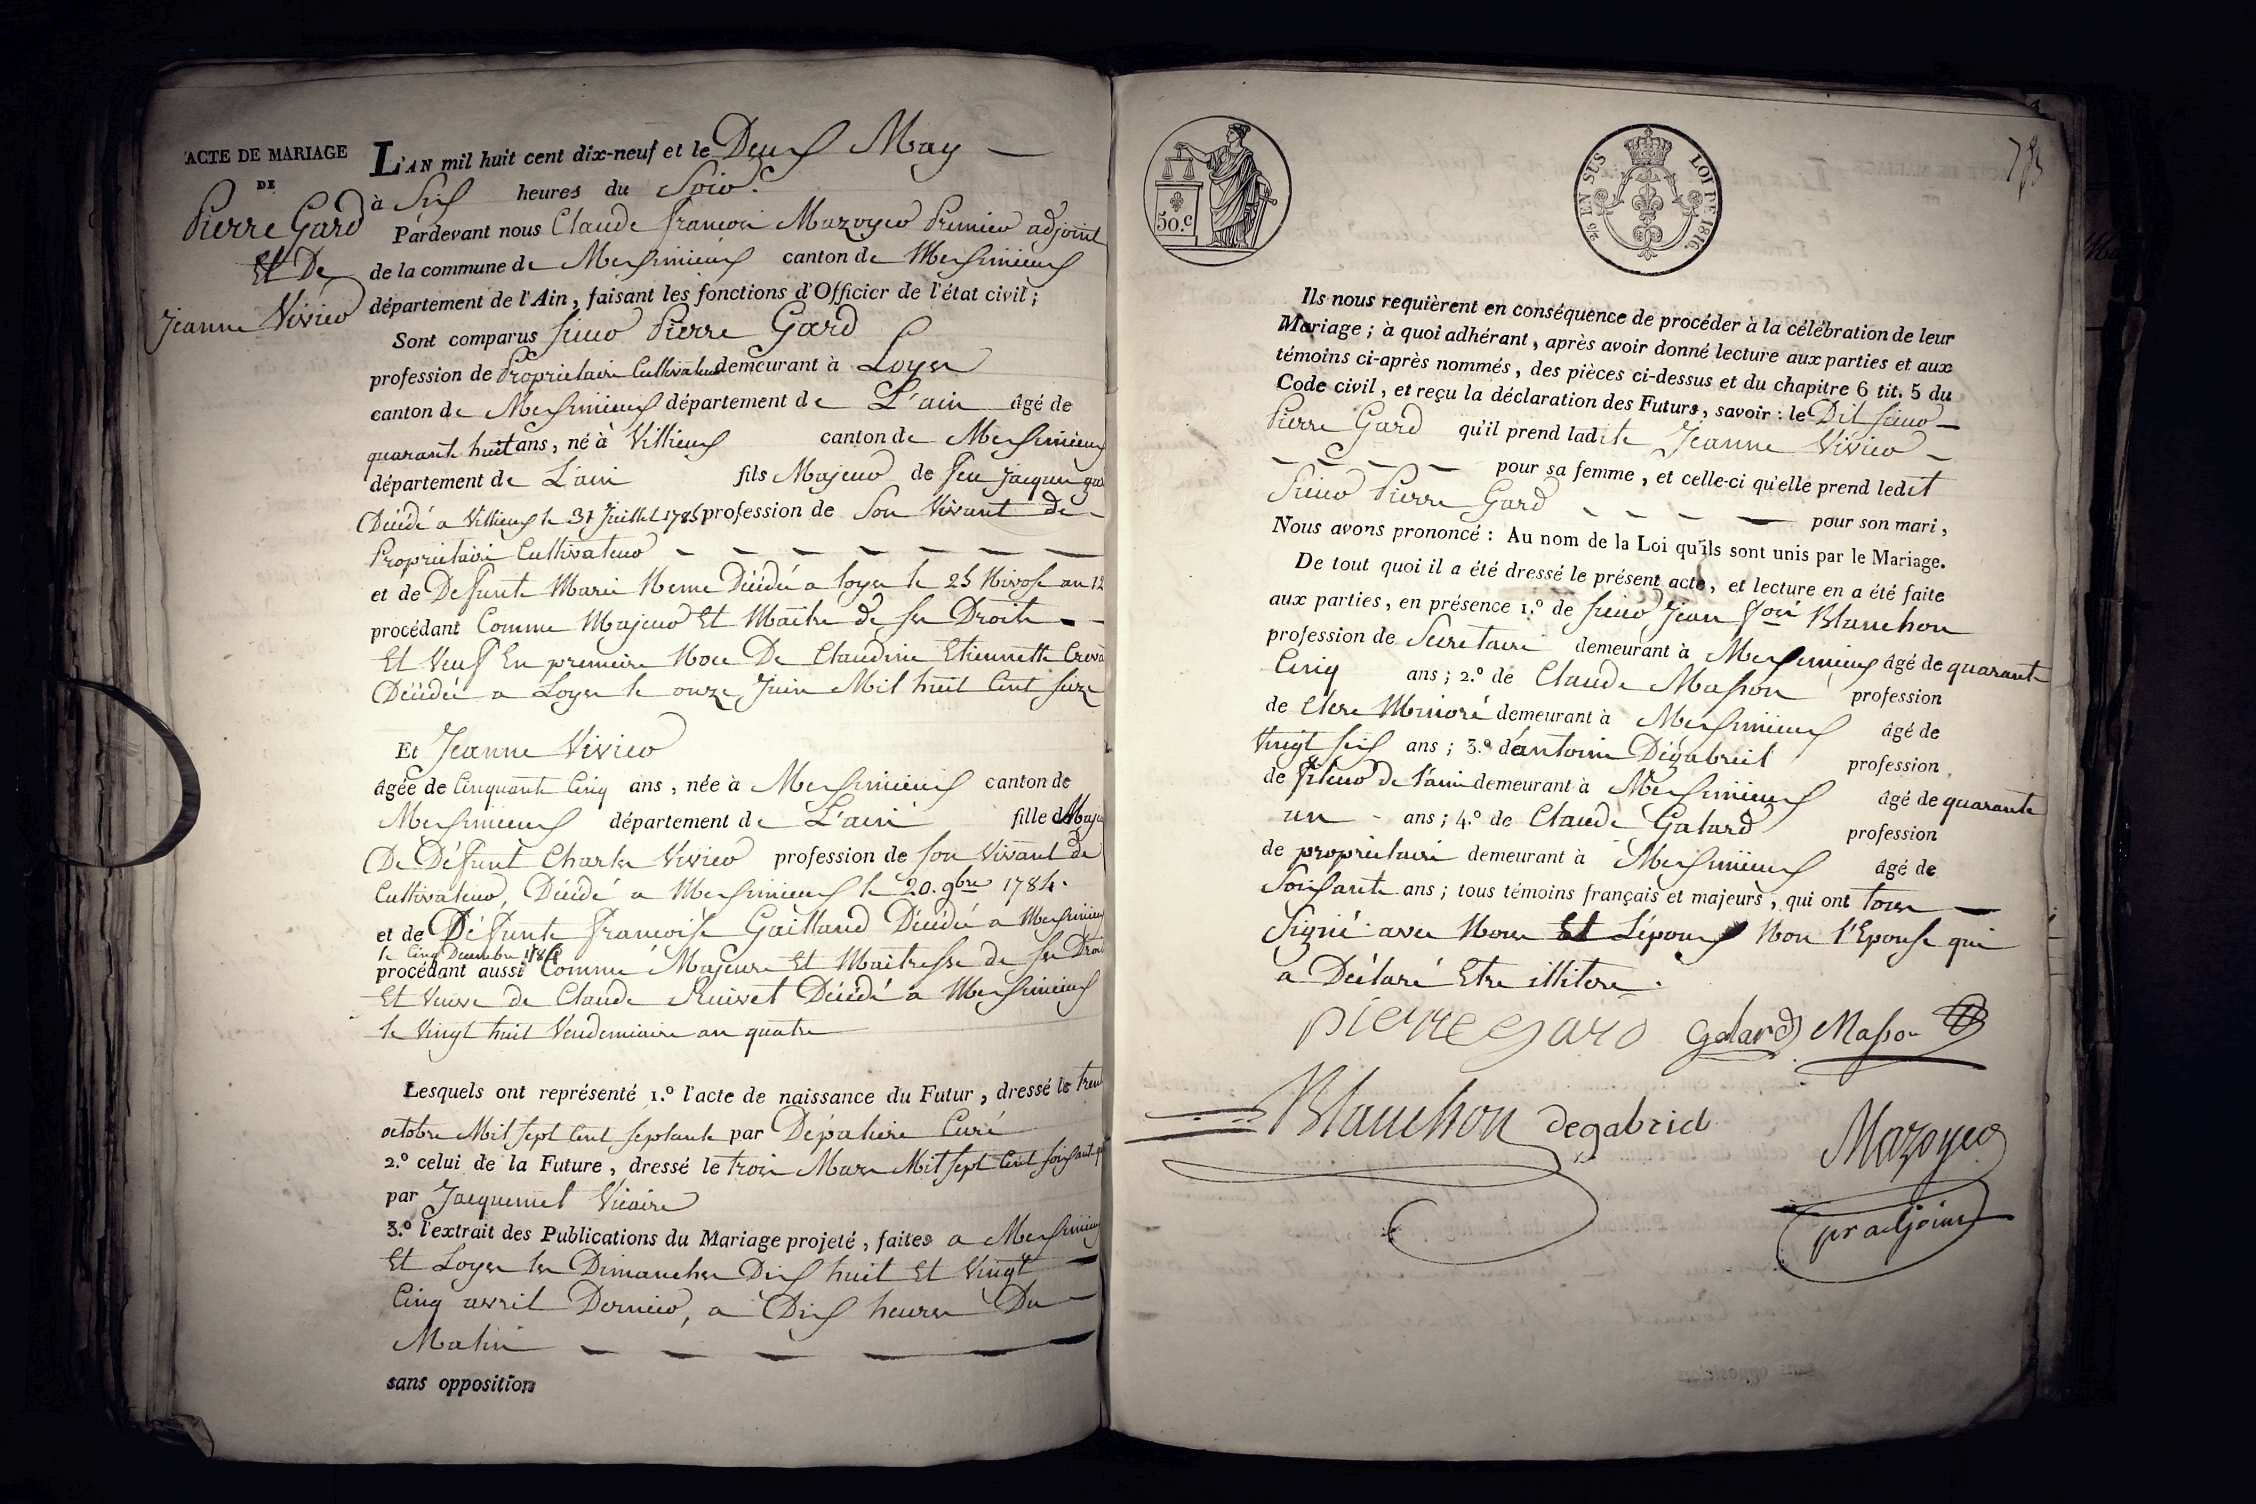 ACTE DE MARIAGE
DE
Pierre Gard
Et De
Jeanne Vivier
L'AN mil huit cent dix-neuf et le Deux May
à Six heures du Soir.
Pardevant nous Claude françois Mazoyer Premier adjoint
de la commune de Mersimieux canton de Mersimieux
département de l'Ain, faisant les fonctions d'Officier de l'état civil;
Sont comparus sieur Pierre Gard
profession de Proprietaire Cultivateur demeurant à Loyes
canton de Mersimieux département de L'ain âgé de
quarante huit ans, né à Villieux canton de Mersimieux
département de L'ain fils Majeur de feu Jacques
Décédé a Villieux le 31 Juillet 1785 profession de Son Vivant de
Proprietaire Cultivateur
et de Defunte Marie Neme Décédée a loyes le 25 Nivose an 12
procédant Comme Majeur Et Maitre de ses Droits
Et Veuf En premiere Noce De Claudine Etiennette
Décédée a Loyes le onze Juin Mil huit Cent seize
Et Jeanne Vivier
âgée de Cinquante Cinq ans, née à Mersimieux canton de
Mersimieux département de L'ain fille
De Défunt Charles Vivier profession de son Vivant de
Cultivateur, Décédé a Mersimieux le 20. 9bre 1784.
et de Défunte françoise Gaillard Décédée a Mersimieux
le Cinq Decembre
procédant aussi Comme Majeure Et Maitresse de ses
Et Veuve de Claude Ruivet Décédé a Mersimieux
le Vingt huit Vendemiaire an quatre
Lesquels ont représenté 1.º l'acte de naissance du Futur, dressé le
octobre Mil sept Cent septante par Dépaliere Curé
2.º celui de la Future, dressé le trois Mars Mil sept Cent
par Jacquemet Vicaire
3.º l'extrait des Publications du Mariage projeté, faites a Mersimieux
Et Loyes les Dimanches Dix huit Et Vingt
Cinq avril Dernier, a Dix heures Du
Matin
sans opposition
50.c
2/5 EN SUS
LOI DE 1816.
Ils nous requièrent en conséquence de procéder à la célébration de leur
Mariage; à quoi adhérant, après avoir donné lecture aux parties et aux
témoins ci-après nommés, des pièces ci-dessus et du chapitre 6 tit. 5 du
Code civil, et reçu la déclaration des Futurs, savoir: le Dit sieur
Pierre Gard qu'il prend ladite Jeanne Vivier
pour sa femme, et celle-ci qu'elle prend ledit
Sieur Pierre Gard pour son mari,
Nous avons prononcé: Au nom de la Loi qu'ils sont unis par le Mariage.
De tout quoi il a été dressé le présent acte, et lecture en a été faite
aux parties, en présence 1.º de sieur Jean Blanchon
profession de Secretaire demeurant à Mersimieux âgé de quarante
Cinq ans; 2.º de Claude Masson profession
de Clerc Minoré demeurant à Mersimieux âgé de
Vingt six ans; 3.º d'antoine Dégabriel profession
de fileur de laine demeurant à Mersimieux âgé de quarante
un ans; 4.º de Claude Galard profession
de proprietaire demeurant à Mersimieux âgé de
Soixante ans; tous témoins français et majeurs, qui ont tous
Signé avec Nous Et L'époux Non l'Epouse qui
a Déclaré Etre illitere.
pierre garo galard Masson
Blanchon degabriel
Mazoyer
pr adjoint